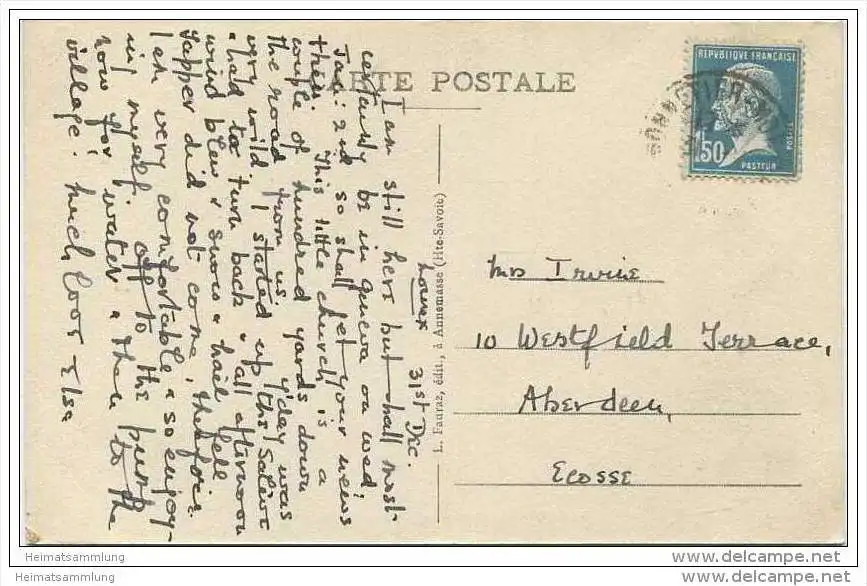 CARTE POSTALE
REPVBLIQUE FRANÇAISE
1F50
POSTES
PASTEUR
BONNE
L. Fauraz, édit., à Annemasse (Hte-Savoie)
31st Dec.
I am still here but shall most
certainly be in Geneva on Wed,
Jan: 2nd so shall get your news
then. This little church is a
couple of hundred yards down
the road from us. Y'day was
very wild. I started up the Salève
& had to turn back - all afternoon
wind blew & snow & hail fell
Yapper did not come, therefore
I am very comfortable & so enjoy-
ing myself. Off to the pump
now for water & then to the
village. Much love Elsa
Mrs Irvine
10 Westfield Terrace,
Aberdeen,
Ecosse
Heimatsammlung
Heimatsammlung
delcampe.net
delcampe.net